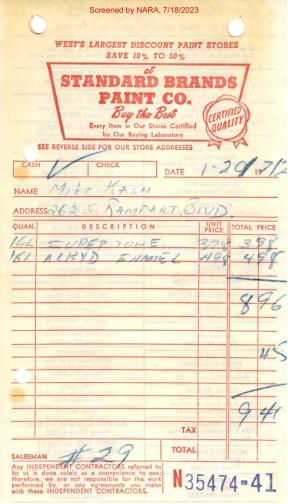 Screened by NARA, 7/18/2023
WEST'S LARGEST DISCOUNT PAINT STORES
SAVE 10% TO 50%
at
STANDARD BRANDS
PAINT CO.
Buy the Best
Every Item in Our Stores Certified
by Our Buying Laboratory
CERTIFIED QUALITY
SEE REVERSE SIDE FOR OUR STORE ADDRESSES
CASH ✓ CHECK DATE 1-20 1972
NAME Mike Kash
ADDRESS 262 S. RAMPART BLVD.
QUAN. DESCRIPTION UNIT PRICE TOTAL PRICE
1GL SUPER TONE 3.98 3.98
1G1 ALKYD ENAMEL 498 4.98
896
45
941
TAX
SALESMAN #29 TOTAL
Any INDEPENDENT CONTRACTORS referred to
by us is done solely as a convenience to you;
therefore, we are not responsible for the work
performed by, or any agreements you make
with these INDEPENDENT CONTRACTORS.
N35474-41